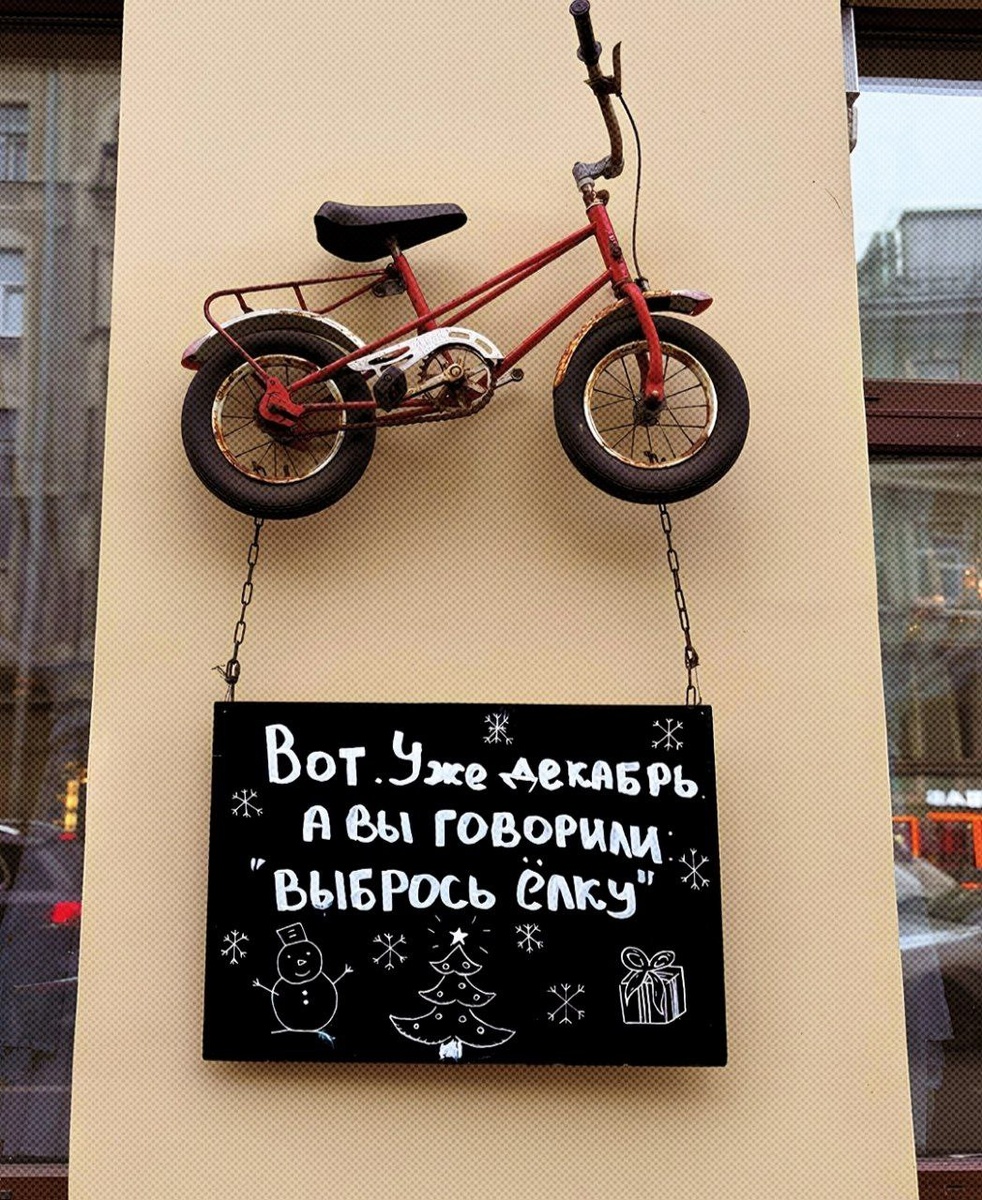 Вот. Уже декабрь.
А вы говорили:
"выбрось ёлку"